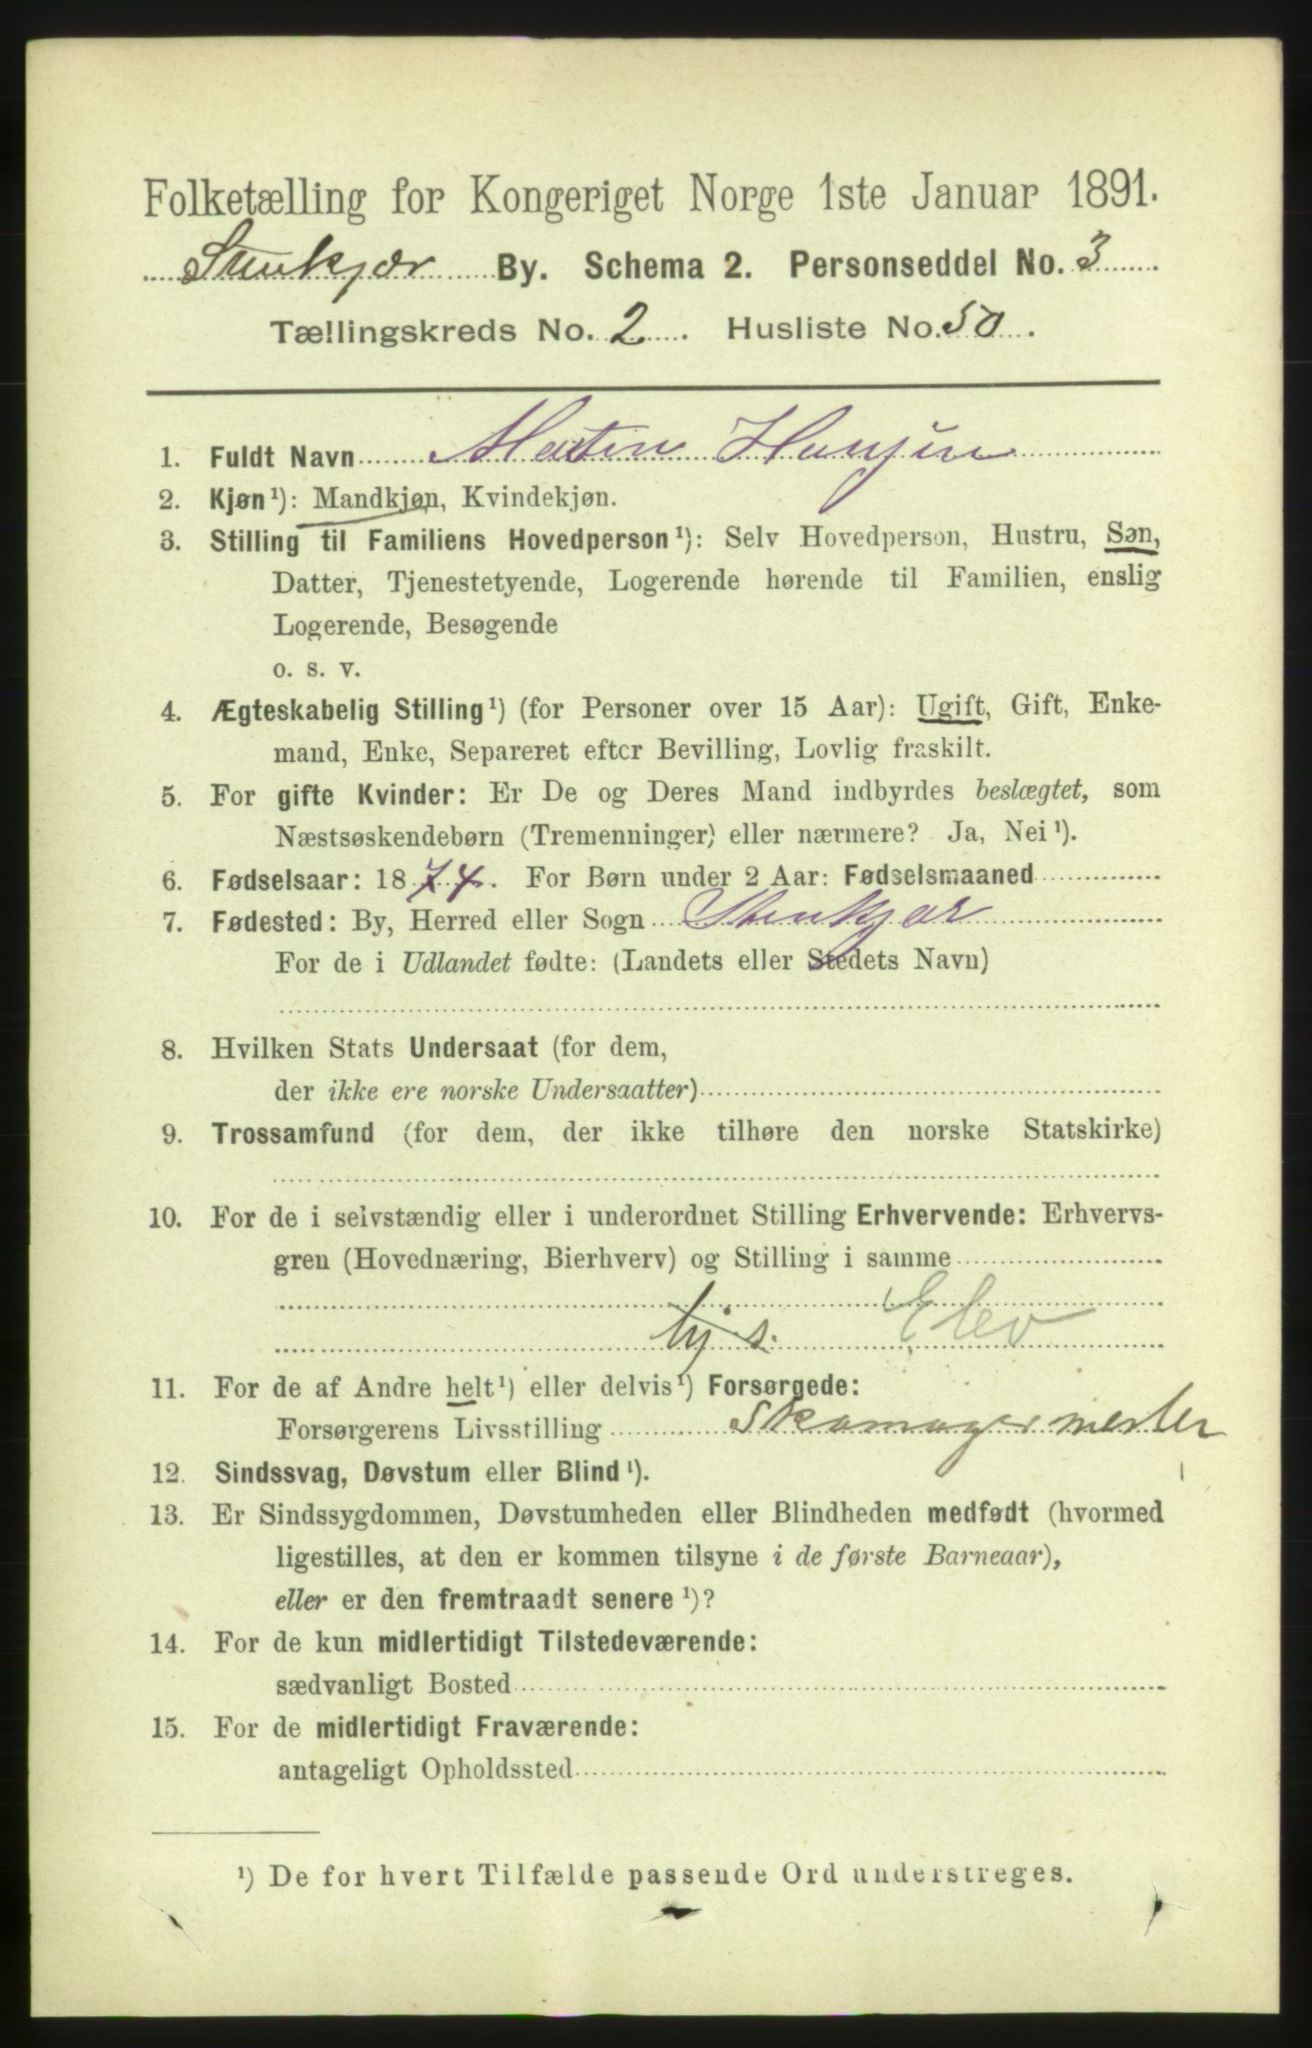 Folketælling for Kongeriget Norge 1ste Januar 1891.
Stenkjær By. Schema 2. Personseddel No. 3
Tællingskreds No. 2. Husliste No. 50.
1. Fuldt Navn Martin Hansen
2. Kjøn¹): Mandkjøn, Kvindekjøn.
3. Stilling til Familiens Hovedperson¹): Selv Hovedperson, Hustru, Søn,
Datter, Tjenestetyende, Logerende hørende til Familien, enslig
Logerende, Besøgende
o. s. v.
4. Ægteskabelig Stilling¹) (for Personer over 15 Aar): Ugift, Gift, Enke-
mand, Enke, Separeret efter Bevilling, Lovlig fraskilt.
5. For gifte Kvinder: Er De og Deres Mand indbyrdes beslægtet, som
Næstsøskendebørn (Tremenninger) eller nærmere? Ja, Nei¹).
6. Fødselsaar: 1874. For Børn under 2 Aar: Fødselsmaaned
7. Fødested: By, Herred eller Sogn Stenkjær
For de i Udlandet fødte: (Landets eller Stedets Navn)
8. Hvilken Stats Undersaat (for dem,
der ikke ere norske Undersaatter)
9. Trossamfund (for dem, der ikke tilhøre den norske Statskirke)
10. For de i selvstændig eller i underordnet Stilling Erhvervende: Erhvervs-
gren (Hovednæring, Bierhverv) og Stilling i samme
Elev
11. For de af Andre helt¹) eller delvis¹) Forsørgede:
Forsørgerens Livsstilling Skomagermester
12. Sindssvag, Døvstum eller Blind¹).
13. Er Sindssygdommen, Døvstumheden eller Blindheden medfødt (hvormed
ligestilles, at den er kommen tilsyne i de første Barneaar),
eller er den fremtraadt senere¹)?
14. For de kun midlertidigt Tilstedeværende:
sædvanligt Bosted
15. For de midlertidigt Fraværende:
antageligt Opholdssted
¹) De for hvert Tilfælde passende Ord understreges.